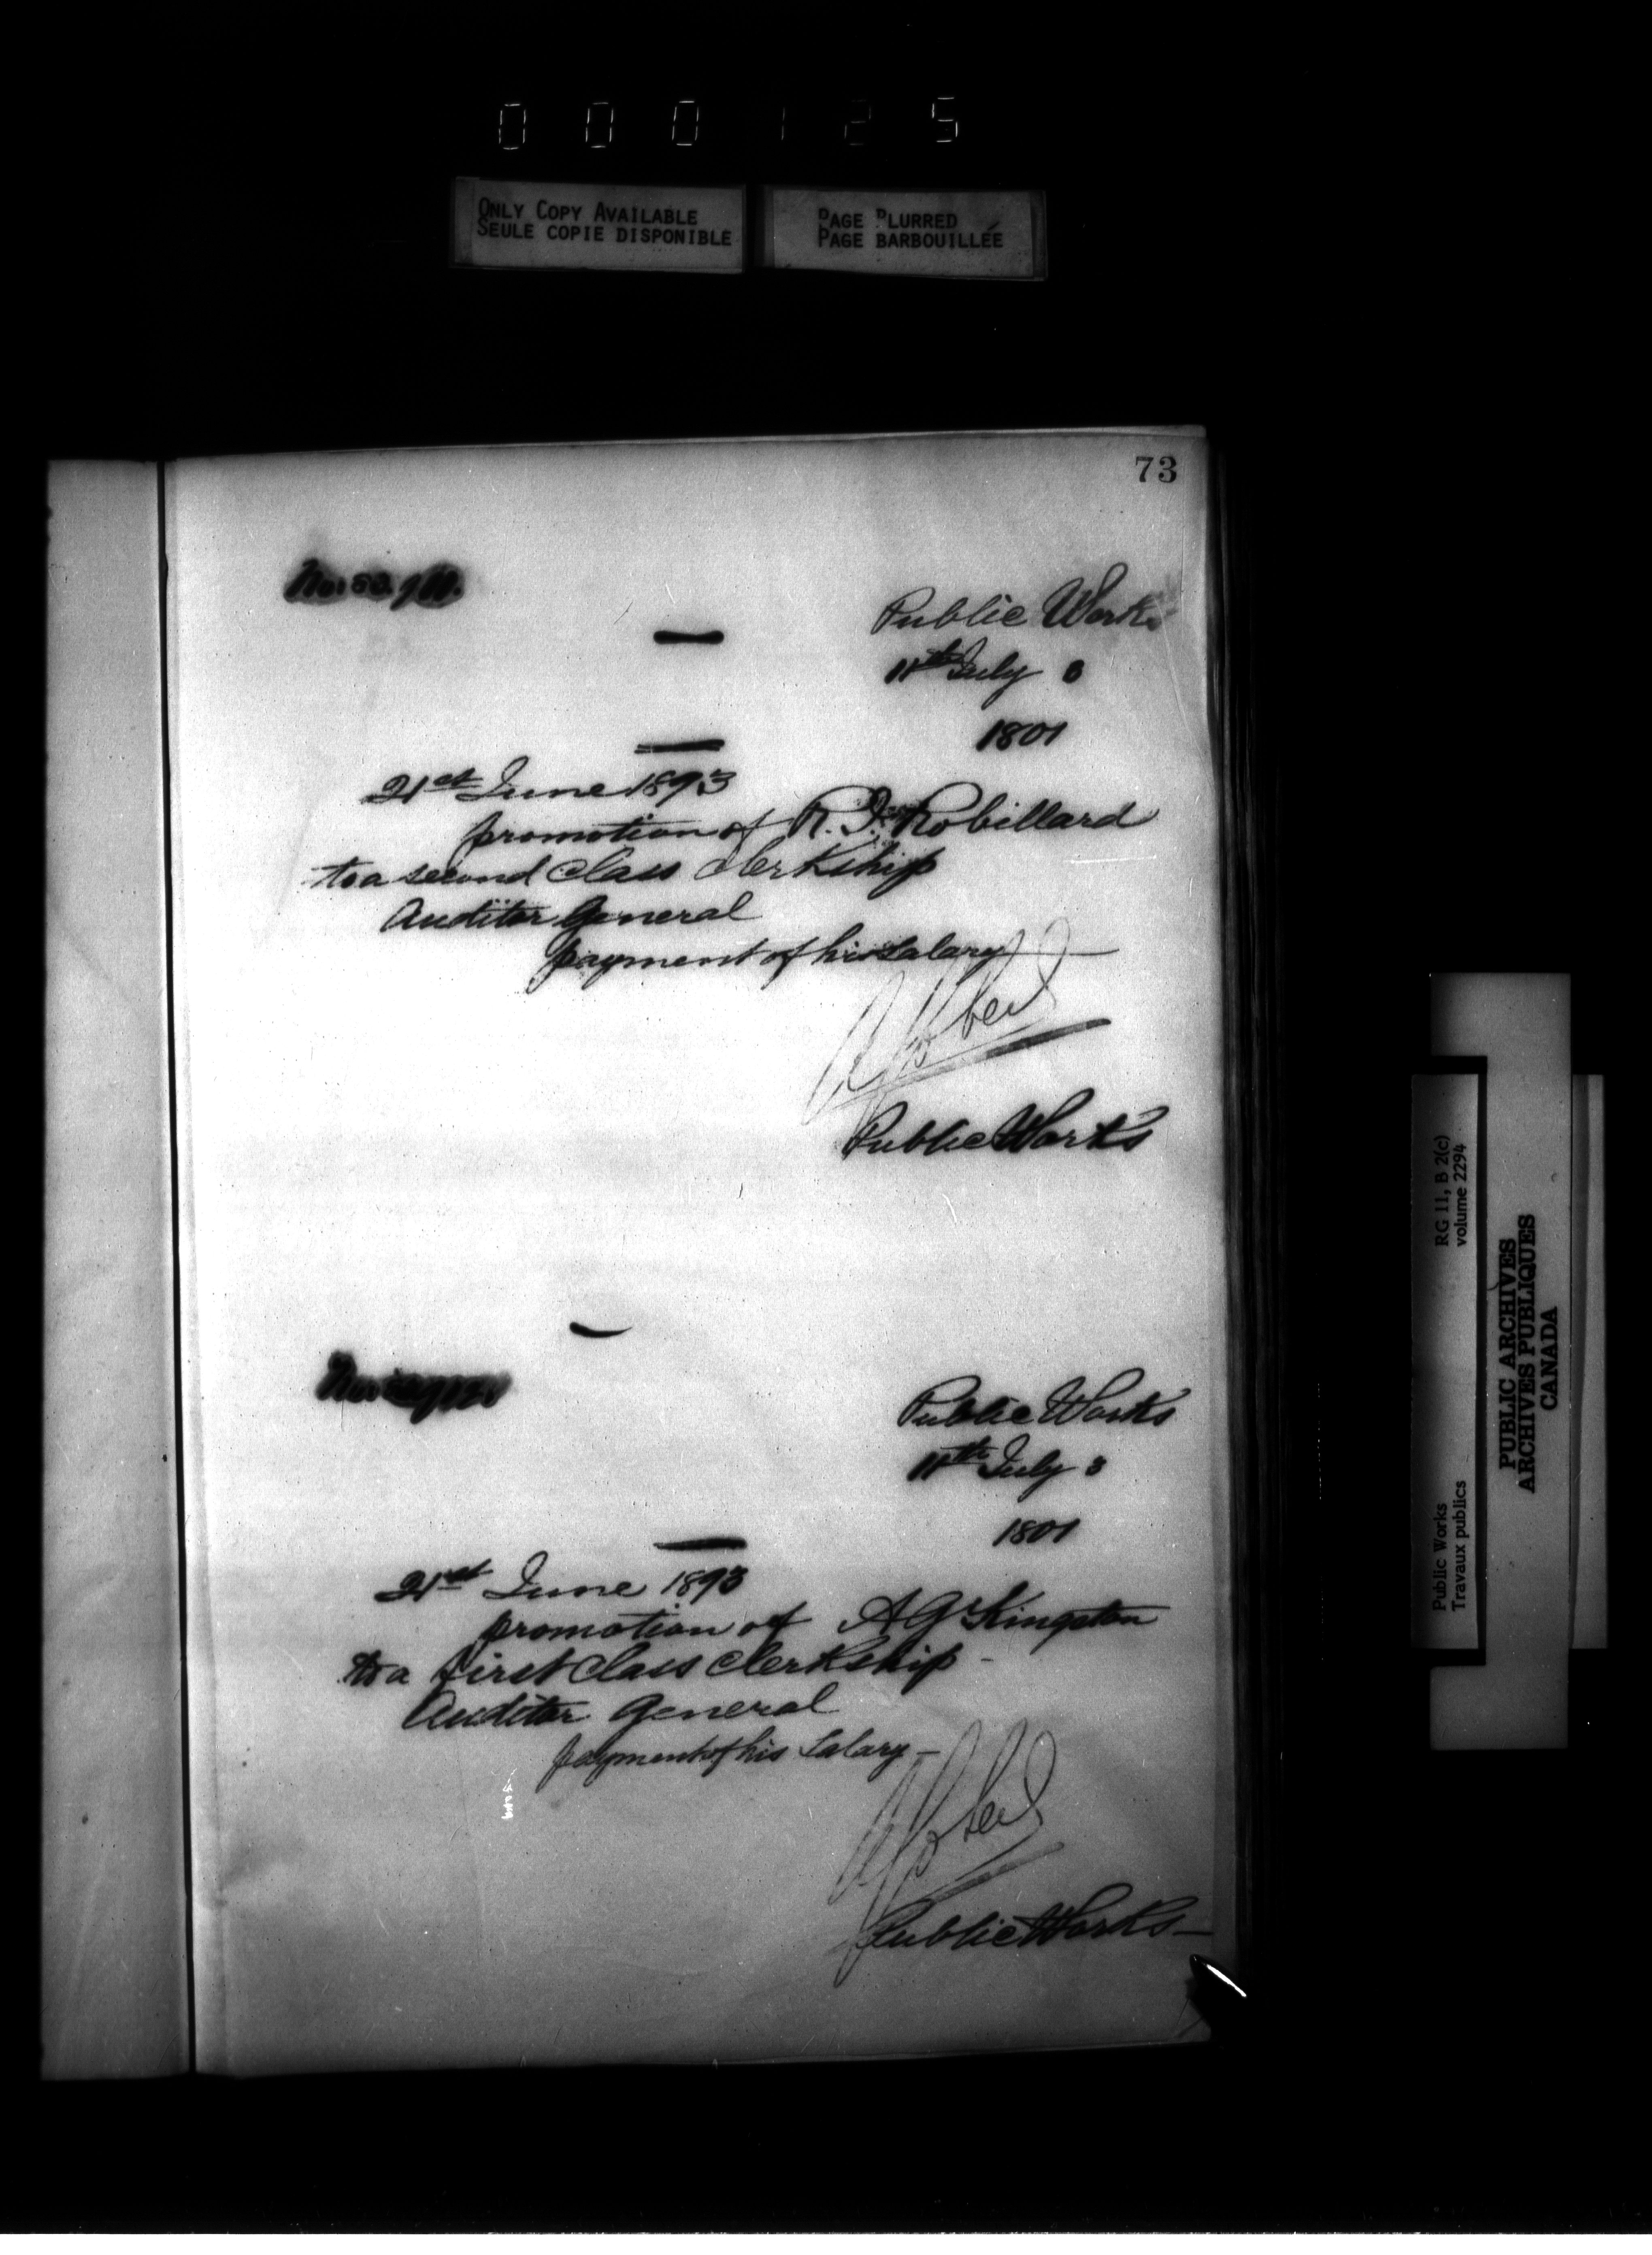 0 0 0 1 2 5
ONLY COPY AVAILABLE
SEULE COPIE DISPONIBLE
PAGE BLURRED
PAGE BARBOUILLÉE
73
Public Works
11th July 3
1801
21st June 1893
promotion of R. J. Robillard
to a second Class Clerkship
Auditor General
payment of his Salary
Public Works
Public Works
11th July 3
1801
21st June 1893
promotion of A G Kingston
to a first Class Clerkship -
Auditor General
payment of his Salary -
Public Works -
Public Works
Travaux publics
RG 11, B 2(c)
volume 2294
PUBLIC ARCHIVES
ARCHIVES PUBLIQUES
CANADA